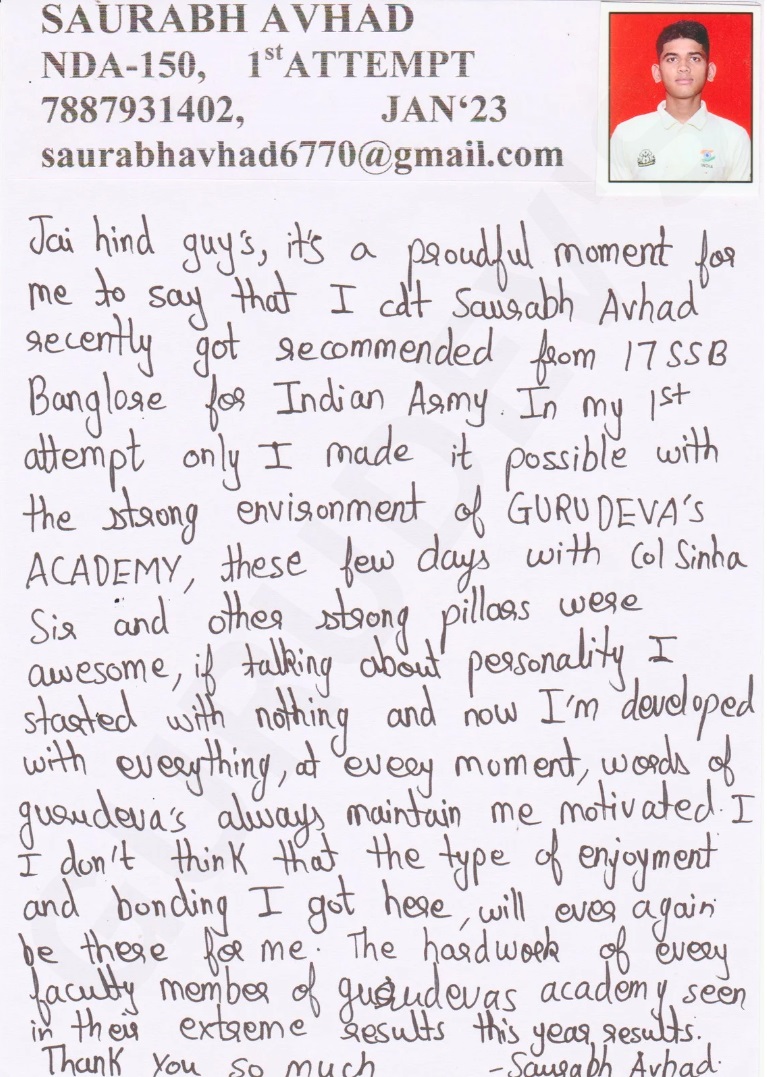 SAURABH AVHAD
NDA-150, 1st ATTEMPT
7887931402, JAN‘23
saurabhavhad6770@gmail.com
Jai hind guy's, it's a proudful moment for
me to say that I cdt Saurabh Avhad
recently got recommended from 17 SSB
Banglore for Indian Army. In my 1st
attempt only I made it possible with
the strong environment of GURUDEVA'S
ACADEMY, these few days with Col Sinha
Sir and other strong pillars were
awesome, if talking about personality I
started with nothing and now I'm developed
with everything, at every moment, words of
gurudeva's always maintain me motivated. I
I don't think that the type of enjoyment
and bonding I got here, will ever again
be there for me. The hardwork of every
faculty member of gurudevas academy seen
in their extreme results this year results.
Thank You so much -Saurabh Avhad.